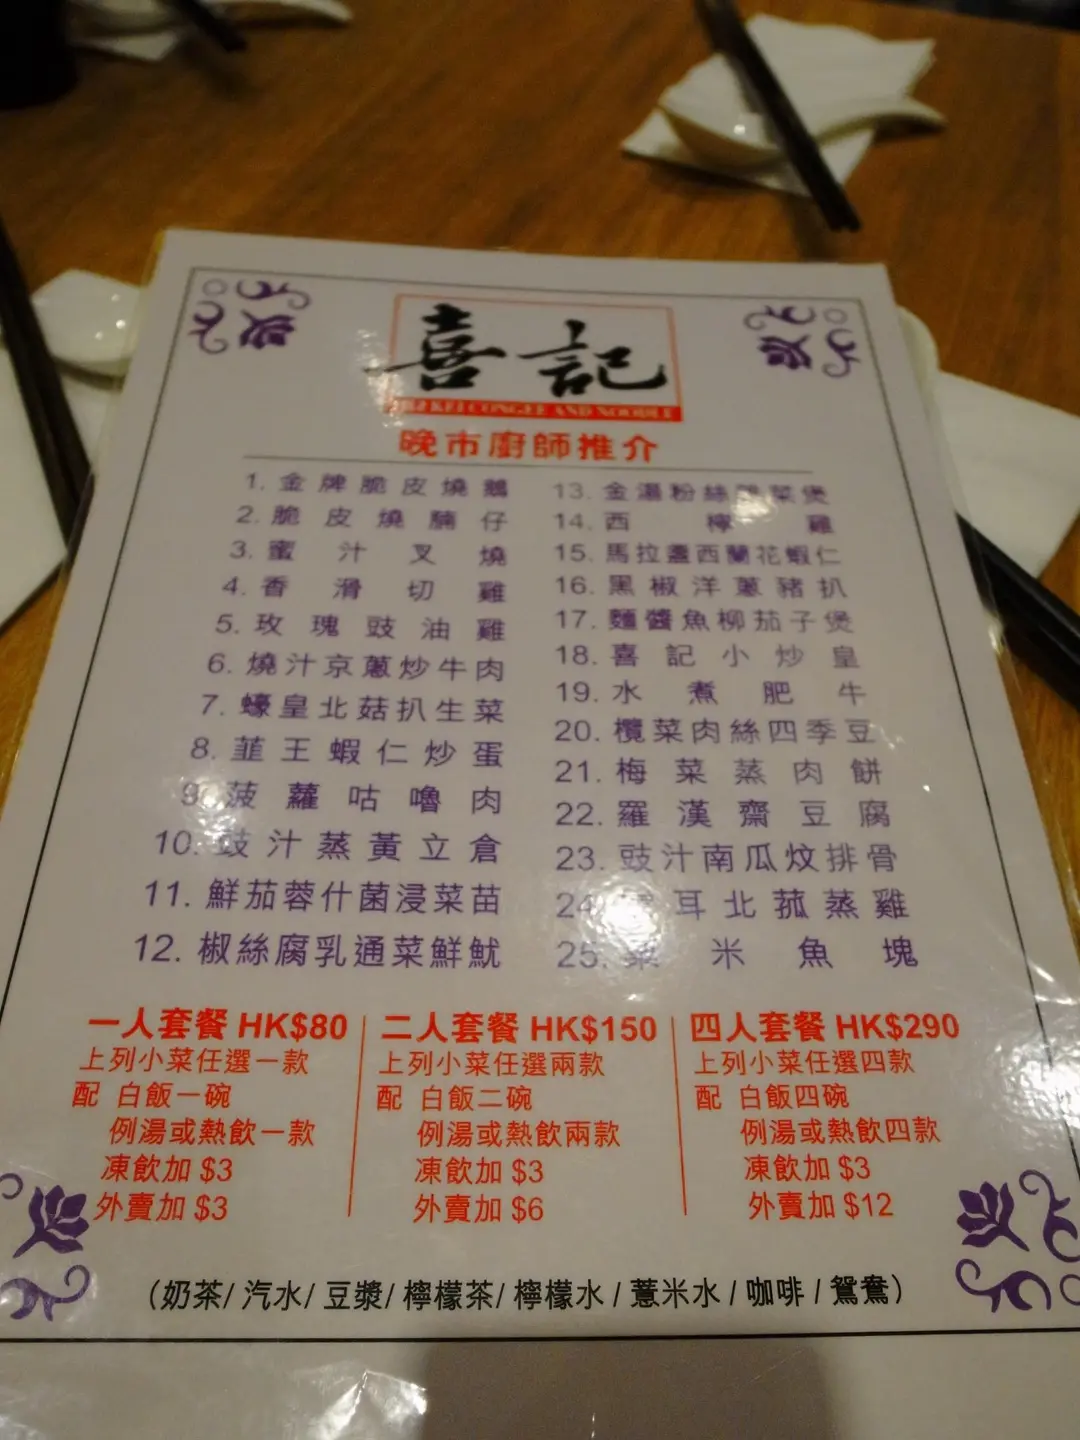 喜記
KEI CONGEE AND NOODLE
晚市廚師推介
1. 金牌脆皮燒鵝
2. 脆皮燒腩仔
3. 蜜汁叉燒
4. 香滑切雞
5. 玫瑰豉油雞
6. 燒汁京蔥炒牛肉
7. 蠔皇北菇扒生菜
8. 韮王蝦仁炒蛋
9. 菠蘿咕嚕肉
10. 豉汁蒸黃立倉
11. 鮮茄蓉什菌浸菜苗
12. 椒絲腐乳通菜鮮魷
13. 金湯粉絲菜煲
14. 西檸雞
15. 馬拉盞西蘭花蝦仁
16. 黑椒洋蔥豬扒
17. 麵醬魚柳茄子煲
18. 喜記小炒皇
19. 水煮肥牛
20. 欖菜肉絲四季豆
21. 梅菜蒸肉餅
22. 羅漢齋豆腐
23. 豉汁南瓜炆排骨
24. 耳北菰蒸雞
25. 粟米魚塊
一人套餐 HK$80
上列小菜任選一款
配 白飯一碗
例湯或熱飲一款
凍飲加 $3
外賣加 $3
二人套餐 HK$150
上列小菜任選兩款
配 白飯二碗
例湯或熱飲兩款
凍飲加 $3
外賣加 $6
四人套餐 HK$290
上列小菜任選四款
配 白飯四碗
例湯或熱飲四款
凍飲加 $3
外賣加 $12
（奶茶/ 汽水/ 豆漿/ 檸檬茶/ 檸檬水 / 薏米水 / 咖啡 / 鴛鴦）